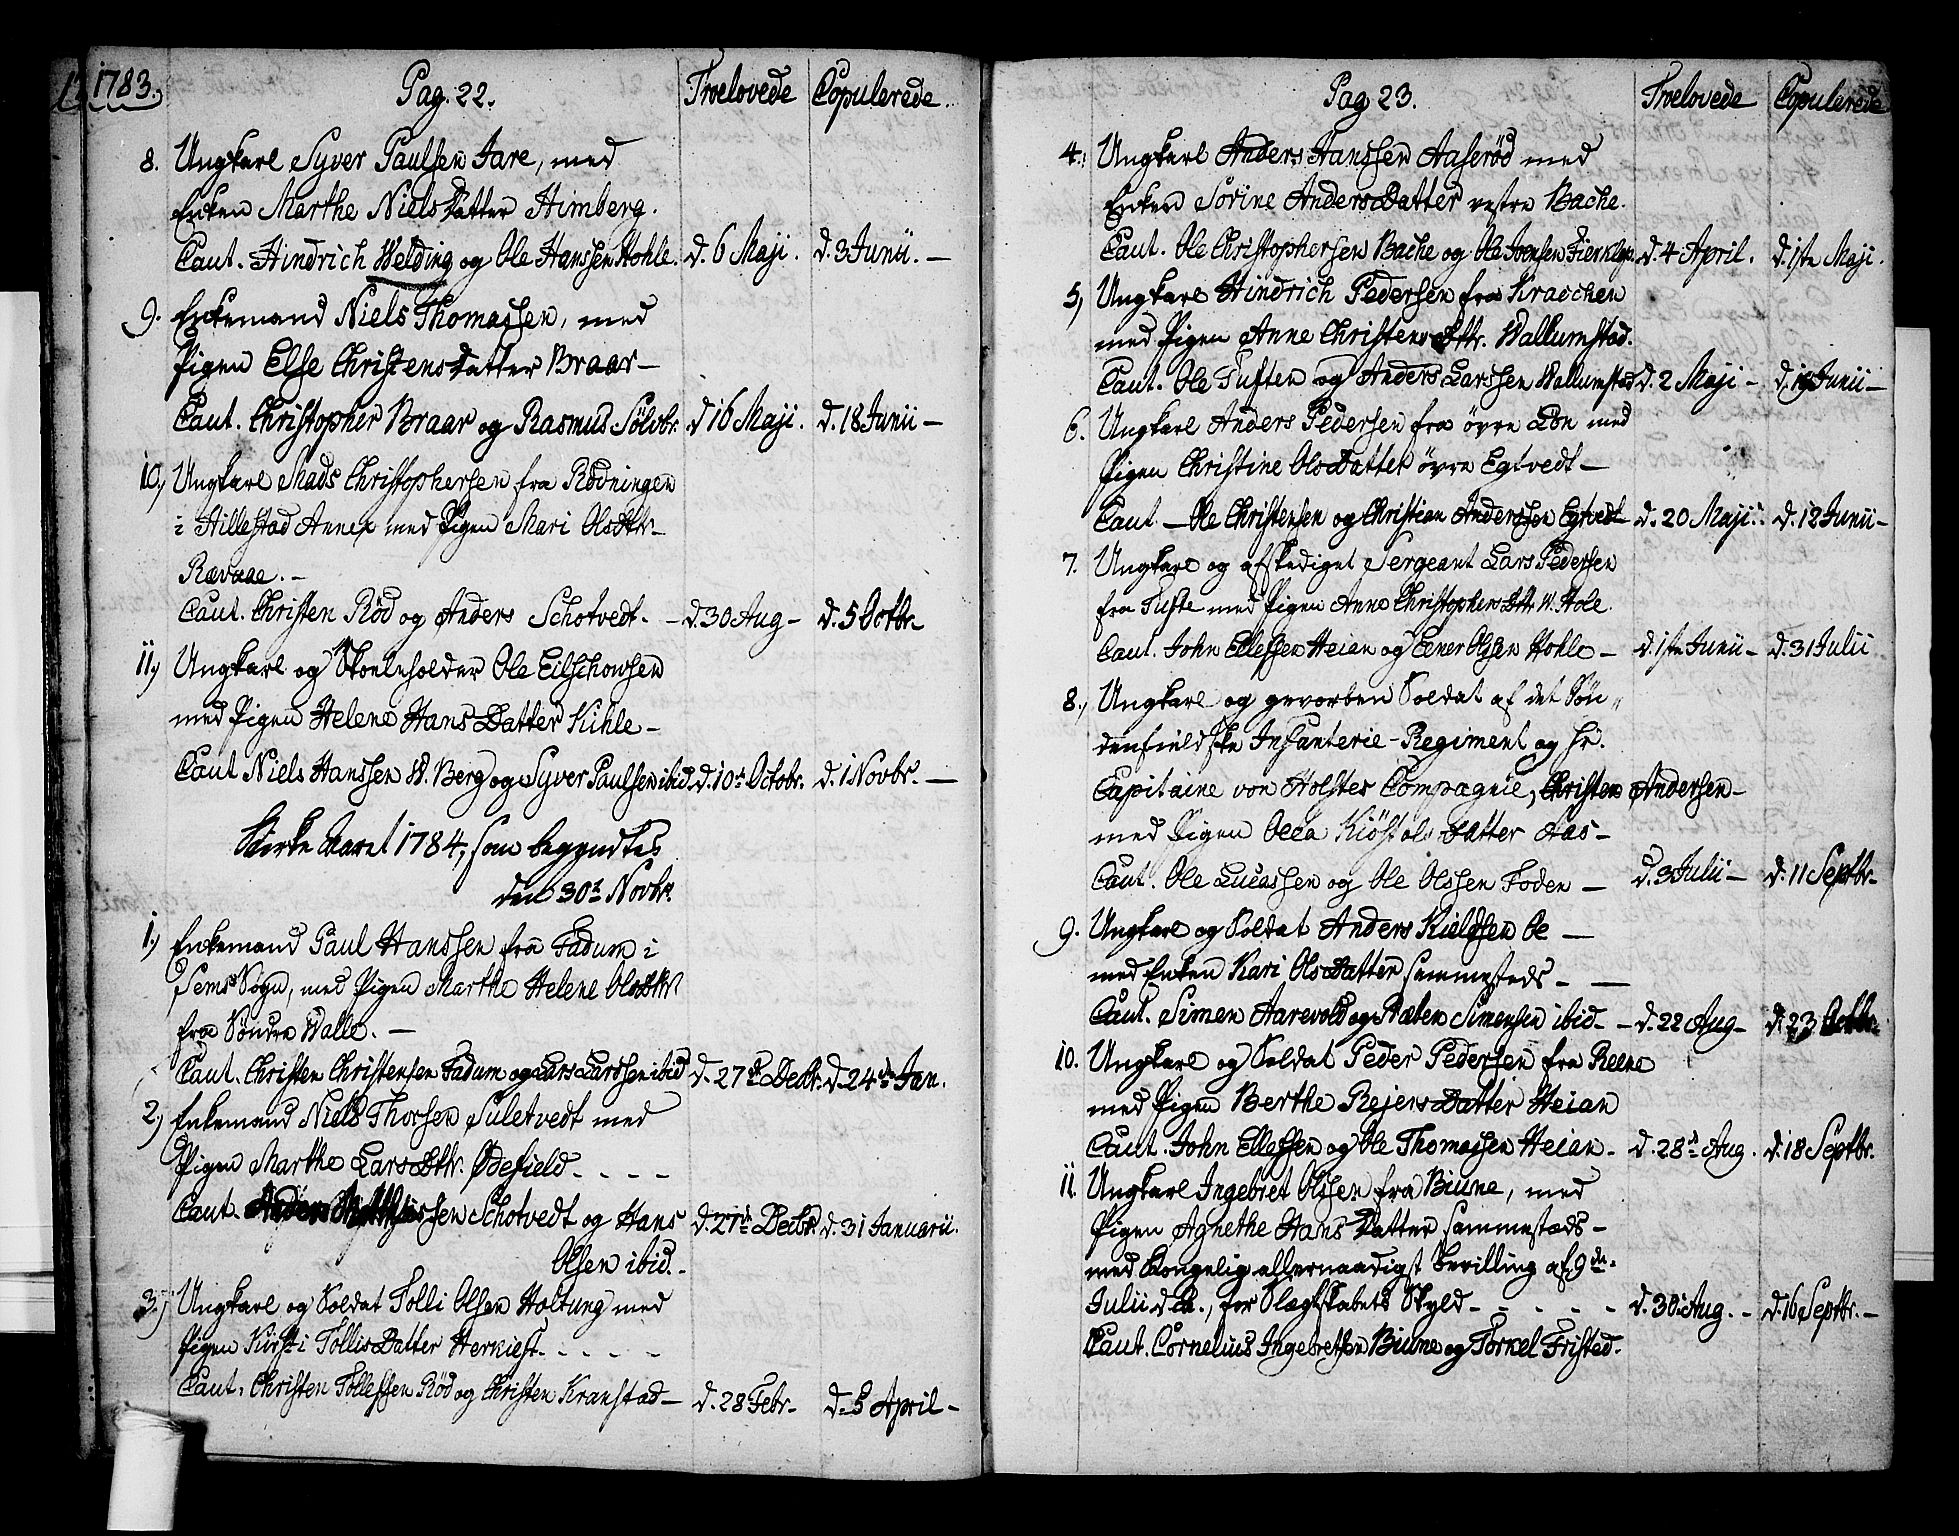 1783.
Pag. 22. Troelovede Copulerede.
8. Ungkarl Syver Paulsen Jare, med
Enken Marthe Niels Datter Himberg.
Caut. Hindrich Welding og Ole Hanssen Hohle. d. 6 Maji. d. 3 Junii. —
9. Enkemand Niels Thomassen, med
Pigen Else Christens Datter Braar —
Caut. Christopher Braar og Rasmus Sölvbr. d. 16 Maji. d. 18 Junii —
10, Ungkarl Mads Christophersen fra Rödningen
i Hillestad Annex med Pigen Mari OlsDtr. —
Rævaae. —
Caut. Christen Röd og Anders Schotvedt. — d. 30 Aug — d. 5 Octbr. —
11, Ungkarl og Skoleholder Ole Eilschowsen
med Pigen Helene Hans Datter Kihle —
Caut Niels Hanssen W. Berg og Syver Paulsen ibid. d. 10. Octobr. d. 1 Novbr. —
Kirke Aaret 1784, som begyndtes
den 30. Novbr.
1., Enkemand Paul Hanssen fra Fadum i
Sems Sogn, med Pigen Marthe Helene OlsDtr
fra Søndre Walle. —
Caut. Christen Christensen Fadum og Lars Larssen ibid d. 27de Decbr. d. 24de Jan.
2, Enkemand Niels Thorsen Suletvedt med
Pigen Marthe LarsDtr. Ødefield - - - -
Caut. Schotvedt og Hans d. 27de Decbr. d. 31 Januarii.
Olsen ibid. -
3., Ungkarl og Soldat Tolli Olsen Holtung med
Pigen Kirsti Tollis Datter Herkiest - - - - -
Caut. Christen Tollefsen Röd og Christen Kranstad — d. 28 Febr. — d. 5 April —
Pag 23. Troelovede Copulerede
4., Ungkarl Anders Hanssen Aaseröd med
Enken Sorine Anders Datter vestre Bache.
Caut. Ole Christophersen Bache og Ole Joensen d. 4 April. d. 1ste Maji.
5, Ungkarl Hindrich Pedersen fra Kraachen
med Pigen Anne Christens Dtr. Wallumstad.
Caut. Ole Tuften og Anders Larssen Wallumstad d. 2 Maji — d. Junii —
6. Ungkarl Anders Pedersen fra övre Lön med
Pigen Christine Ols Datter övre Egtvedt —
Caut — Ole Christensen og Christian Anderssen Egtvedt d. 20 Maji. d. 12 Junii —
7. Ungkarl og afskediget Sergeant Lars Pedersen
fra Tufte med Pigen Anne Christophers Dtr W. Hole.
Caut. John Ellefsen Heian og Ener Olsen Hohle — d. 1ste Junii — d. 31 Julii
8., Ungkarl og gevorben Soldat af det Sön„
denfieldske Infanterie-Regiment og Hr.
Capitaine von Holstes Compagnie, Christen Andersen —
med Pigen Olea Kiöstols Datter Aas —
Caut. Ole Lucassen og Ole Olssen Foden — d. 3 Julii — d. 11 Septbr. —
9. Ungkarl og Soldat Anders Kieldsen Oe —
med Enken Kari Ols Datter sammesteds - —
Caut. Simen Aarevold og Simensen ibid - — d. 22 Aug — d. 23 Octbr.
10. Ungkarl og Soldat Peder Pedersen fra Reene
med Pigen Berthe Rejers Datter Heian
Caut. John Ellefsen og Ole Thomassen Heian — d. 28. Aug. d. 18 Septbr.
11. Ungkarl Ingebret Olssen fra Biune, med
Pigen Agnethe Hans Datter sammestæds —
med Kongelig allernaadigst Bevilling af 9de
Julii d. A., for Slægtskabets Skyld - - - - - d. 30. Aug. - d. 16 Septbr. —
Caut. Cornelius Ingebretsen Biune og Torkel Fristad.